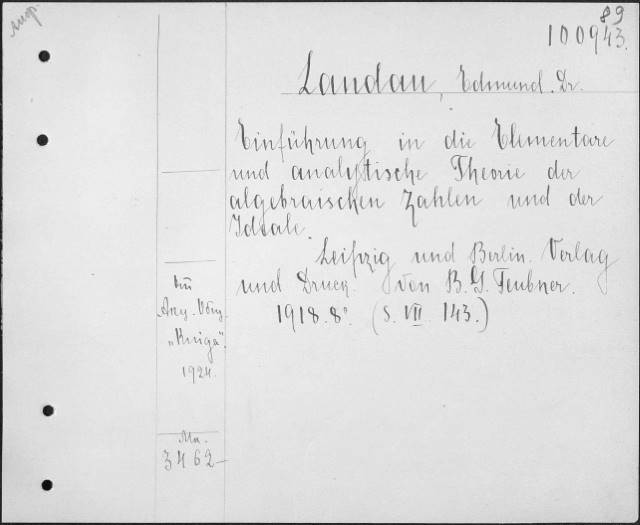 89
100943.
Landau, Edmund. Dr.
Einführung in die Elementare
und analytische Theorie der
algebraischen Zahlen und der
Ideale.
Leipzig und Berlin. Verlag
und Druck. von B. G. Teubner.
1918. 8°. (S. VII. 143.)
"Kniga".
1924.
3462